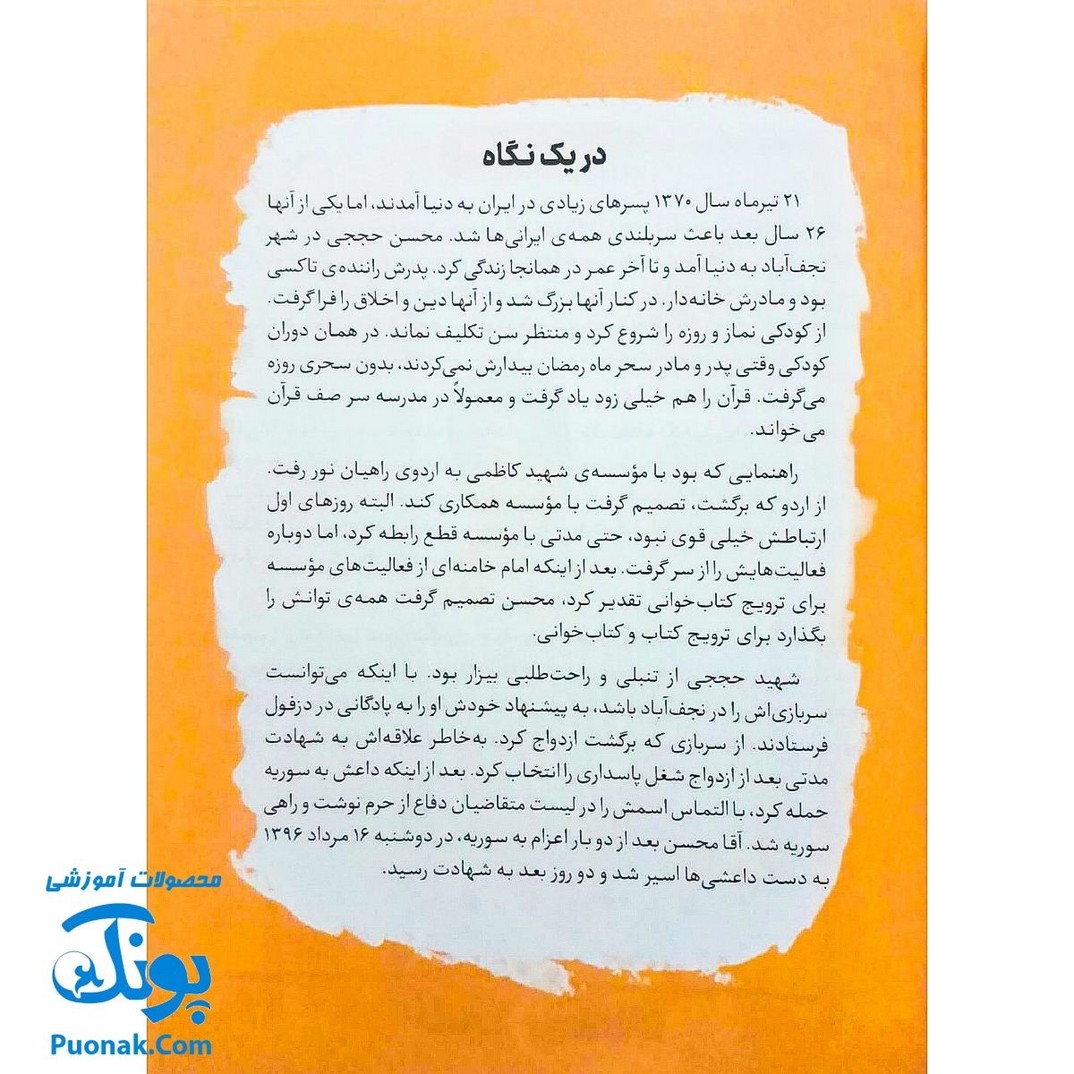 در یک نگاه
۲۱ تیرماه سال ۱۳۷۰ پسرهای زیادی در ایران به دنیا آمدند، اما یکی از آنها
۲۶ سال بعد باعث سربلندی همه‌ی ایرانی‌ها شد. محسن حججی در شهر
نجف‌آباد به دنیا آمد و تا آخر عمر در همانجا زندگی کرد. پدرش راننده‌ی تاکسی
بود و مادرش خانه‌دار. در کنار آنها بزرگ شد و از آنها دین و اخلاق را فرا گرفت.
از کودکی نماز و روزه را شروع کرد و منتظر سن تکلیف نماند. در همان دوران
کودکی وقتی پدر و مادر سحر ماه رمضان بیدارش نمی‌کردند، بدون سحری روزه
می‌گرفت. قرآن را هم خیلی زود یاد گرفت و معمولاً در مدرسه سر صف قرآن
می‌خواند.
راهنمایی که بود با مؤسسه‌ی شهید کاظمی به اردوی راهیان نور رفت.
از اردو که برگشت، تصمیم گرفت با مؤسسه همکاری کند. البته روزهای اول
ارتباطش خیلی قوی نبود، حتی مدتی با مؤسسه قطع رابطه کرد، اما دوباره
فعالیت‌هایش را از سر گرفت. بعد از اینکه امام خامنه‌ای از فعالیت‌های مؤسسه
برای ترویج کتاب‌خوانی تقدیر کرد، محسن تصمیم گرفت همه‌ی توانش را
بگذارد برای ترویج کتاب و کتاب‌خوانی.
شهید حججی از تنبلی و راحت‌طلبی بیزار بود. با اینکه می‌توانست
سربازی‌اش را در نجف‌آباد باشد، به پیشنهاد خودش او را به پادگانی در دزفول
فرستادند. از سربازی که برگشت ازدواج کرد. به‌خاطر علاقه‌اش به شهادت
مدتی بعد از ازدواج شغل پاسداری را انتخاب کرد. بعد از اینکه داعش به سوریه
حمله کرد، با التماس اسمش را در لیست متقاضیان دفاع از حرم نوشت و راهی
سوریه شد. آقا محسن بعد از دو بار اعزام به سوریه، در دوشنبه ۱۶ مرداد ۱۳۹۶
به دست داعشی‌ها اسیر شد و دو روز بعد به شهادت رسید.
محصولات آموزشی
پونک
Puonak.Com